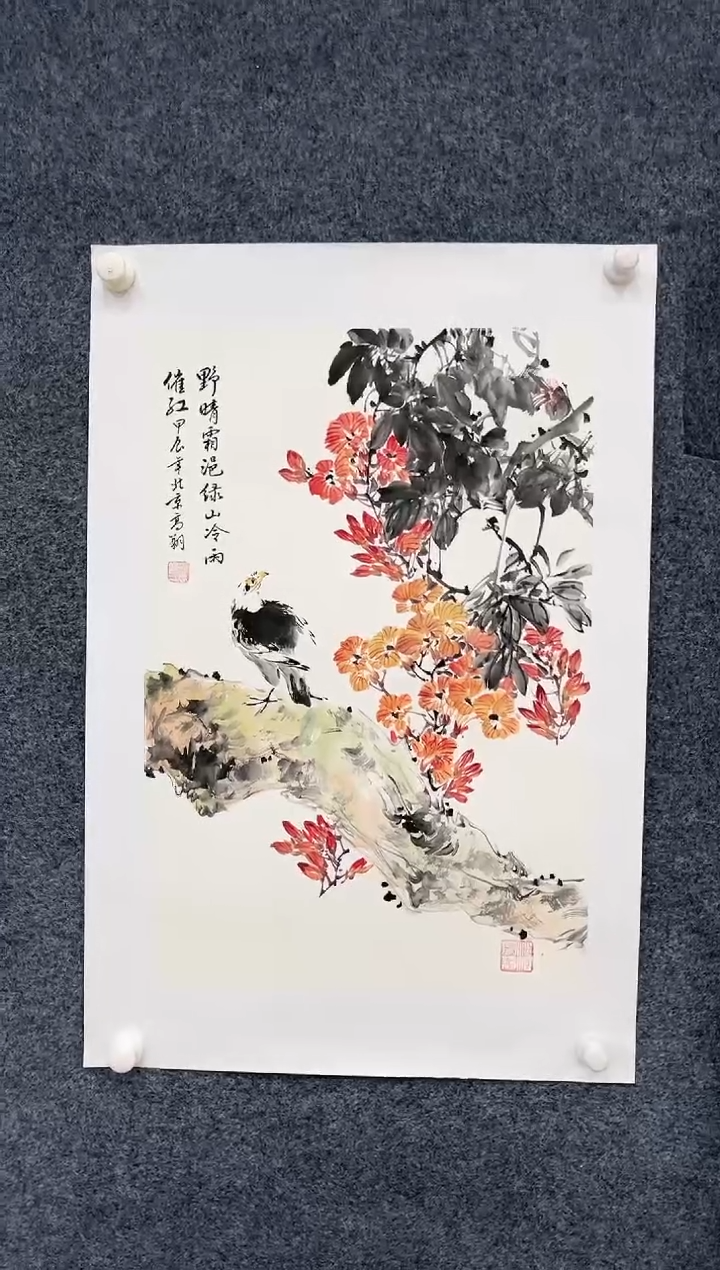 野晴霜浥绿山冷雨
催红甲辰年北京高翔